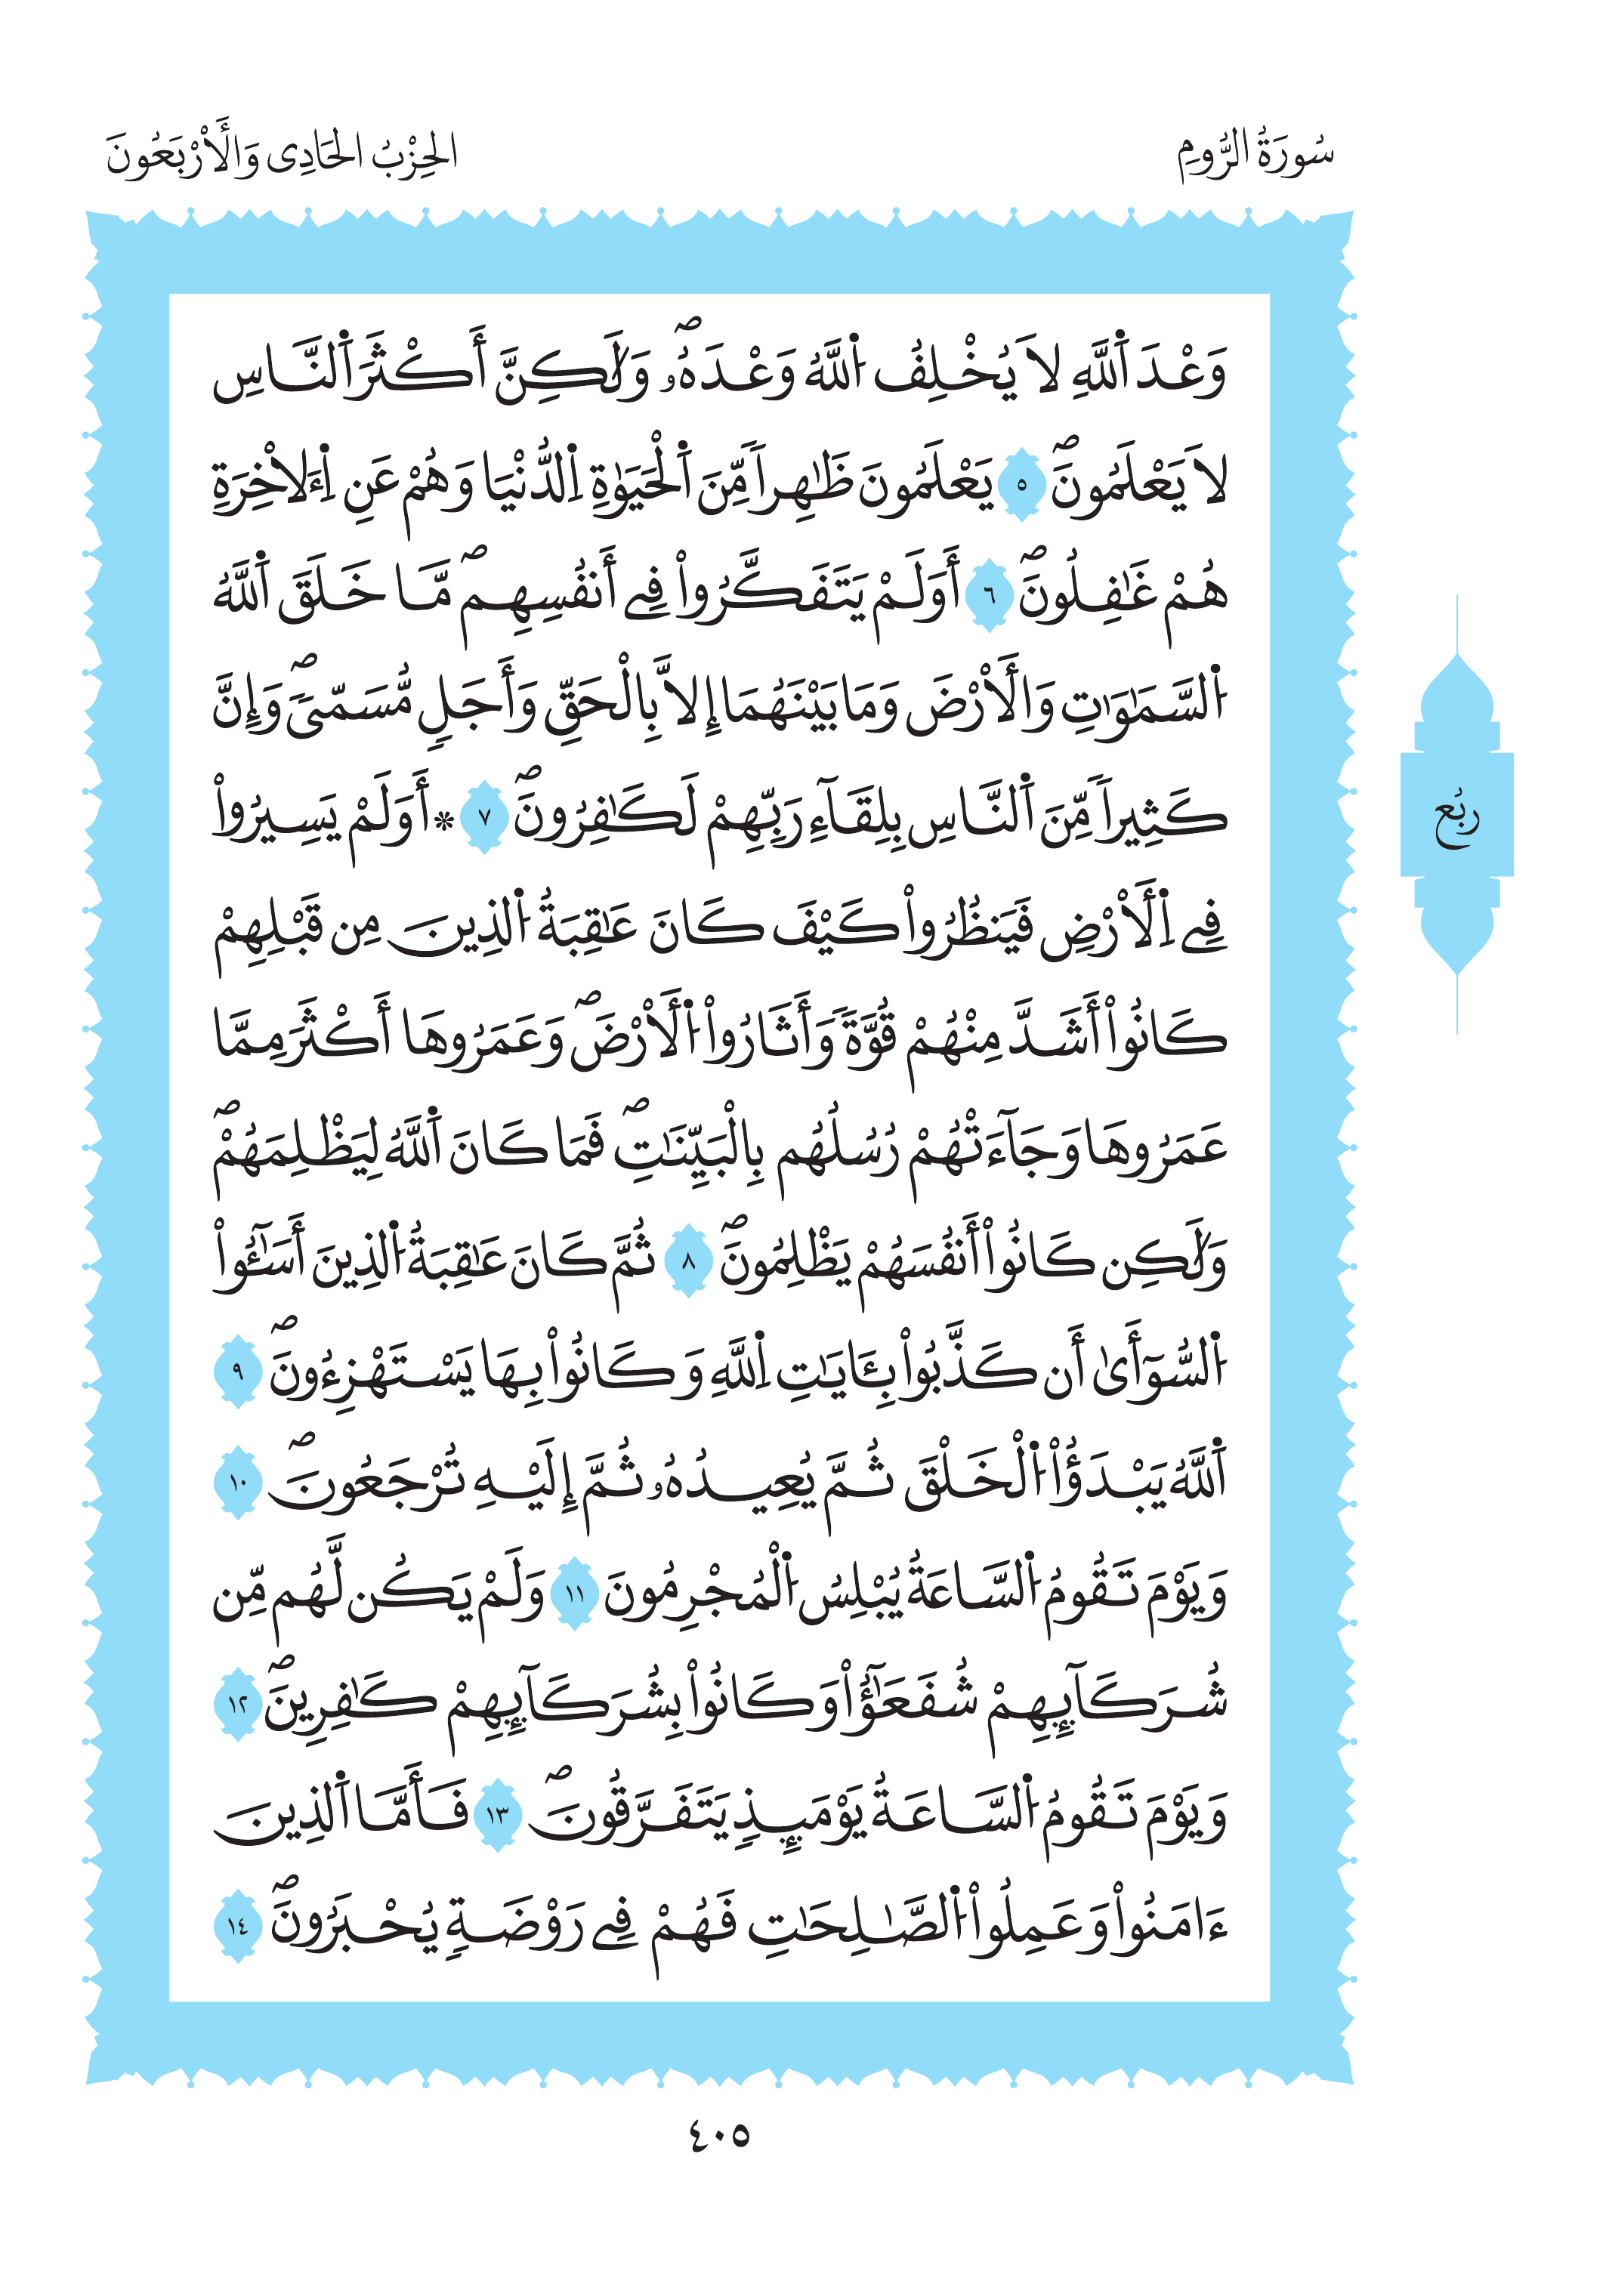 سُورَةُ الرُّومِ
الحِزْبُ الحَادِى وَالَأَرْبَعُونَ
وَعْدَ اَ۬للَّهِ لَا يُخْلِفُ اُ۬للَّهُ وَعْدَهُۥۖ وَلَٰكِنَّ أَكْثَرَ اَ۬لنَّاسِ
لَا يَعْلَمُونَۖ ٥ يَعْلَمُونَ ظَٰهِراٗ مِّنَ اَ۬لْحَيَوٰةِ اِ۬لدُّنْي۪ا وَهُمْ عَنِ اِ۬لَاخِرَةِ
هُمْ غَٰفِلُونَۖ ٦ أَوَلَمْ يَتَفَكَّرُواْ فِے أَنفُسِهِمۖ مَّا خَلَقَ اَ۬للَّهُ
اُ۬لسَّمَٰوَٰتِ وَالَارْضَ وَمَا بَيْنَهُمَا إِلَّا بِالْحَقِّ وَأَجَلٖ مُّسَمّيٗۖ وَإِنَّ
كَثِيراٗ مِّنَ اَ۬لنَّاسِ بِلِقَآءِ رَبِّهِمْ لَكَٰفِرُونَۖ ٧ * أَوَلَمْ يَسِيرُواْ
فِے اِ۬لَارْضِ فَيَنظُرُواْ كَيْفَ كَانَ عَٰقِبَةُ اُ۬لذِينَ مِن قَبْلِهِمْ
كَانُواْ أَشَدَّ مِنْهُمْ قُوَّةٗ وَأَثَارُواْ اُ۬لَارْضَۖ وَعَمَرُوهَا أَكْثَرَ مِمَّا
عَمَرُوهَا وَجَآءَتْهُمْ رُسُلُهُم بِالْبَيِّنَٰتِۖ فَمَا كَانَ اَ۬للَّهُ لِيَظْلِمَهُمْۖ
وَلَٰكِن كَانُواْ أَنفُسَهُمْ يَظْلِمُونَۖ ٨ ثُمَّ كَانَ عَٰقِبَةُ اُ۬لذِينَ أَسَٰٓـُٔواْ
اُ۬لسُّوٓأَىٰ أَن كَذَّبُواْ بِـَٔايَٰتِ اِ۬للَّهِ وَكَانُواْ بِهَا يَسْتَهْزِءُونَۖ ٩
اَ۬للَّهُ يَبْدَؤُاْ اُ۬لْخَلْقَ ثُمَّ يُعِيدُهُۥ ثُمَّ إِلَيْهِ تُرْجَعُونَۖ ١٠
وَيَوْمَ تَقُومُ اُ۬لسَّاعَةُ يُبْلِسُ اُ۬لْمُجْرِمُونَ ١١ وَلَمْ يَكُن لَّهُم مِّن
شُرَكَآئِهِمْ شُفَعَٰٓؤُاْ وَكَانُواْ بِشُرَكَآئِهِمْ كَٰفِرِينَۖ ١٢
وَيَوْمَ تَقُومُ اُ۬لسَّاعَةُ يَوْمَئِذٖ يَتَفَرَّقُونَۖ ١٣ فَأَمَّا اَ۬لذِينَ
ءَامَنُواْ وَعَمِلُواْ اُ۬لصَّٰلِحَٰتِ فَهُمْ فِے رَوْضَةٖ يُحْبَرُونَۖ ١٤
ربُع
٤٠٥